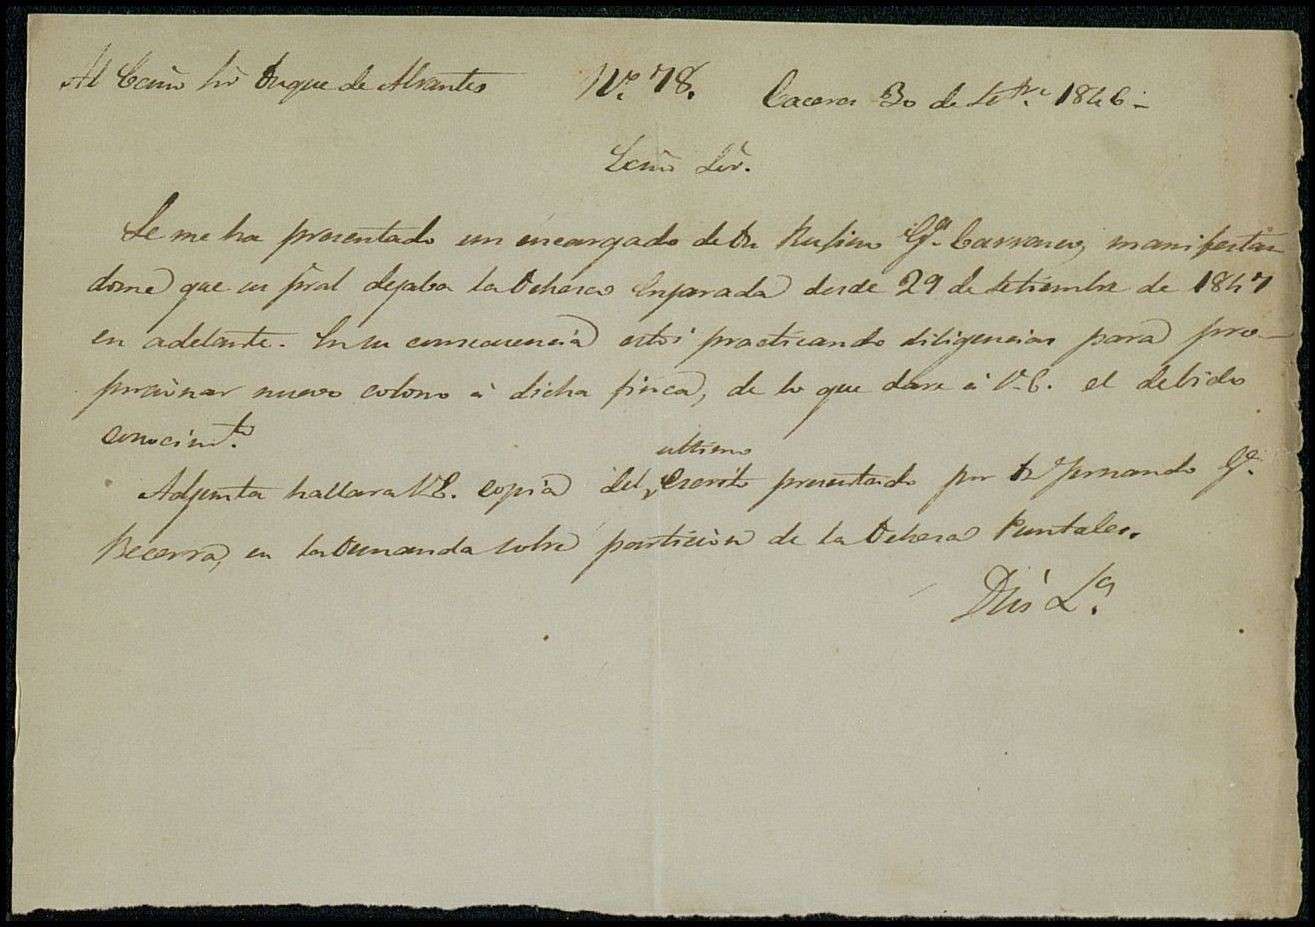 Al Ecmo Sr Duque de Abrantes Nº. 78. Caceres 30 de Setbre. 1846-
Ecmo Sór.
Se me ha presentado un encargado de Dn Rufino Ga. Carrasco, manifestan-
dome que su pral dejaba la Dehesa Enjarada desde 29 de Setiembre de 1847
en adelante. En su consecuencia estoi practicando diligencias para pro-
porcionar nuevo colono á dicha finca, de lo que daré á V.E. el debido
conocimto.
Adjunta hallara V.E. copia del ultimo escrito presentado por Dn Fernando Ga.
Becerra, en la Demanda sobre particion de la Dehesa Puntales.